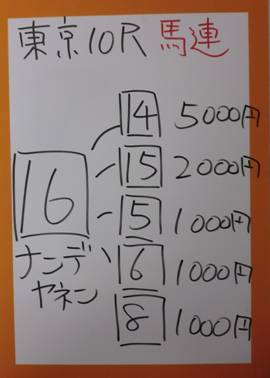 東京10R 馬連
14 5000円
15 2000円
16
5 1000円
ナンデ
ヤネン
6 1000円
8 1000円